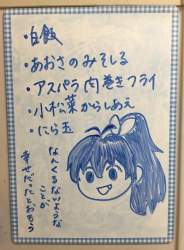 ・白飯
・あおさのみそしる
・アスパラ肉巻きフライ
・小松菜からしあえ
・にら玉
なんくるないような
ことが
幸せだったとおもう